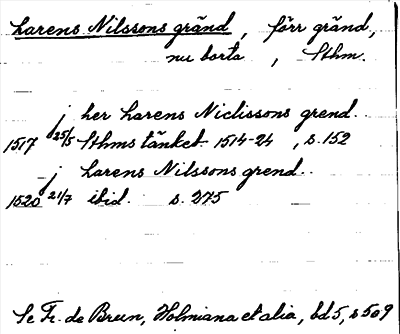 Larens Nilssons gränd, förr gränd,
nu borta, Sthm.
j her Larens Niclissons grend.
1517 25/5 Sthms tänkeb. 1514-24, s. 152
j Larens Nilssons grend.
1520 21/7 ibid. s. 275
Se Fr. de Brun, Holmiana et alia, bd 5, s 509